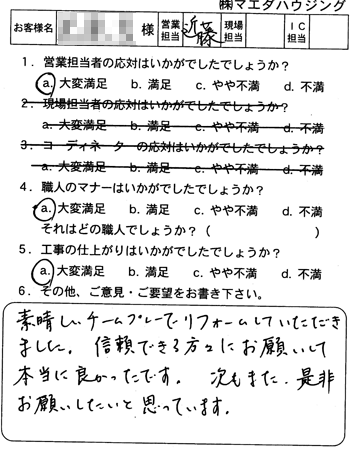 ㈱マエダハウジング
お客様名 様 営業担当 近藤 現場担当 ＩＣ担当
１．営業担当者の応対はいかがでしたでしょうか？
a. 大変満足 b. 満足 c. やや不満 d. 不満
２．現場担当者の応対はいかがでしたでしょうか？
a. 大変満足 b. 満足 c. やや不満 d. 不満
３．コーディネーターの応対はいかがでしたでしょうか？
a. 大変満足 b. 満足 c. やや不満 d. 不満
４．職人のマナーはいかがでしたでしょうか？
a. 大変満足 b. 満足 c. やや不満 d. 不満
それはどの職人でしょうか？（ ）
５．工事の仕上がりはいかがでしたでしょうか？
a. 大変満足 b. 満足 c. やや不満 d. 不満
６．その他、ご意見・ご要望をお書き下さい。
素晴しいチームプレーでリフォームしていただき
ました。信頼できる方々にお願いして
本当に良かったです。次もまた、是非
お願いしたいと思っています。